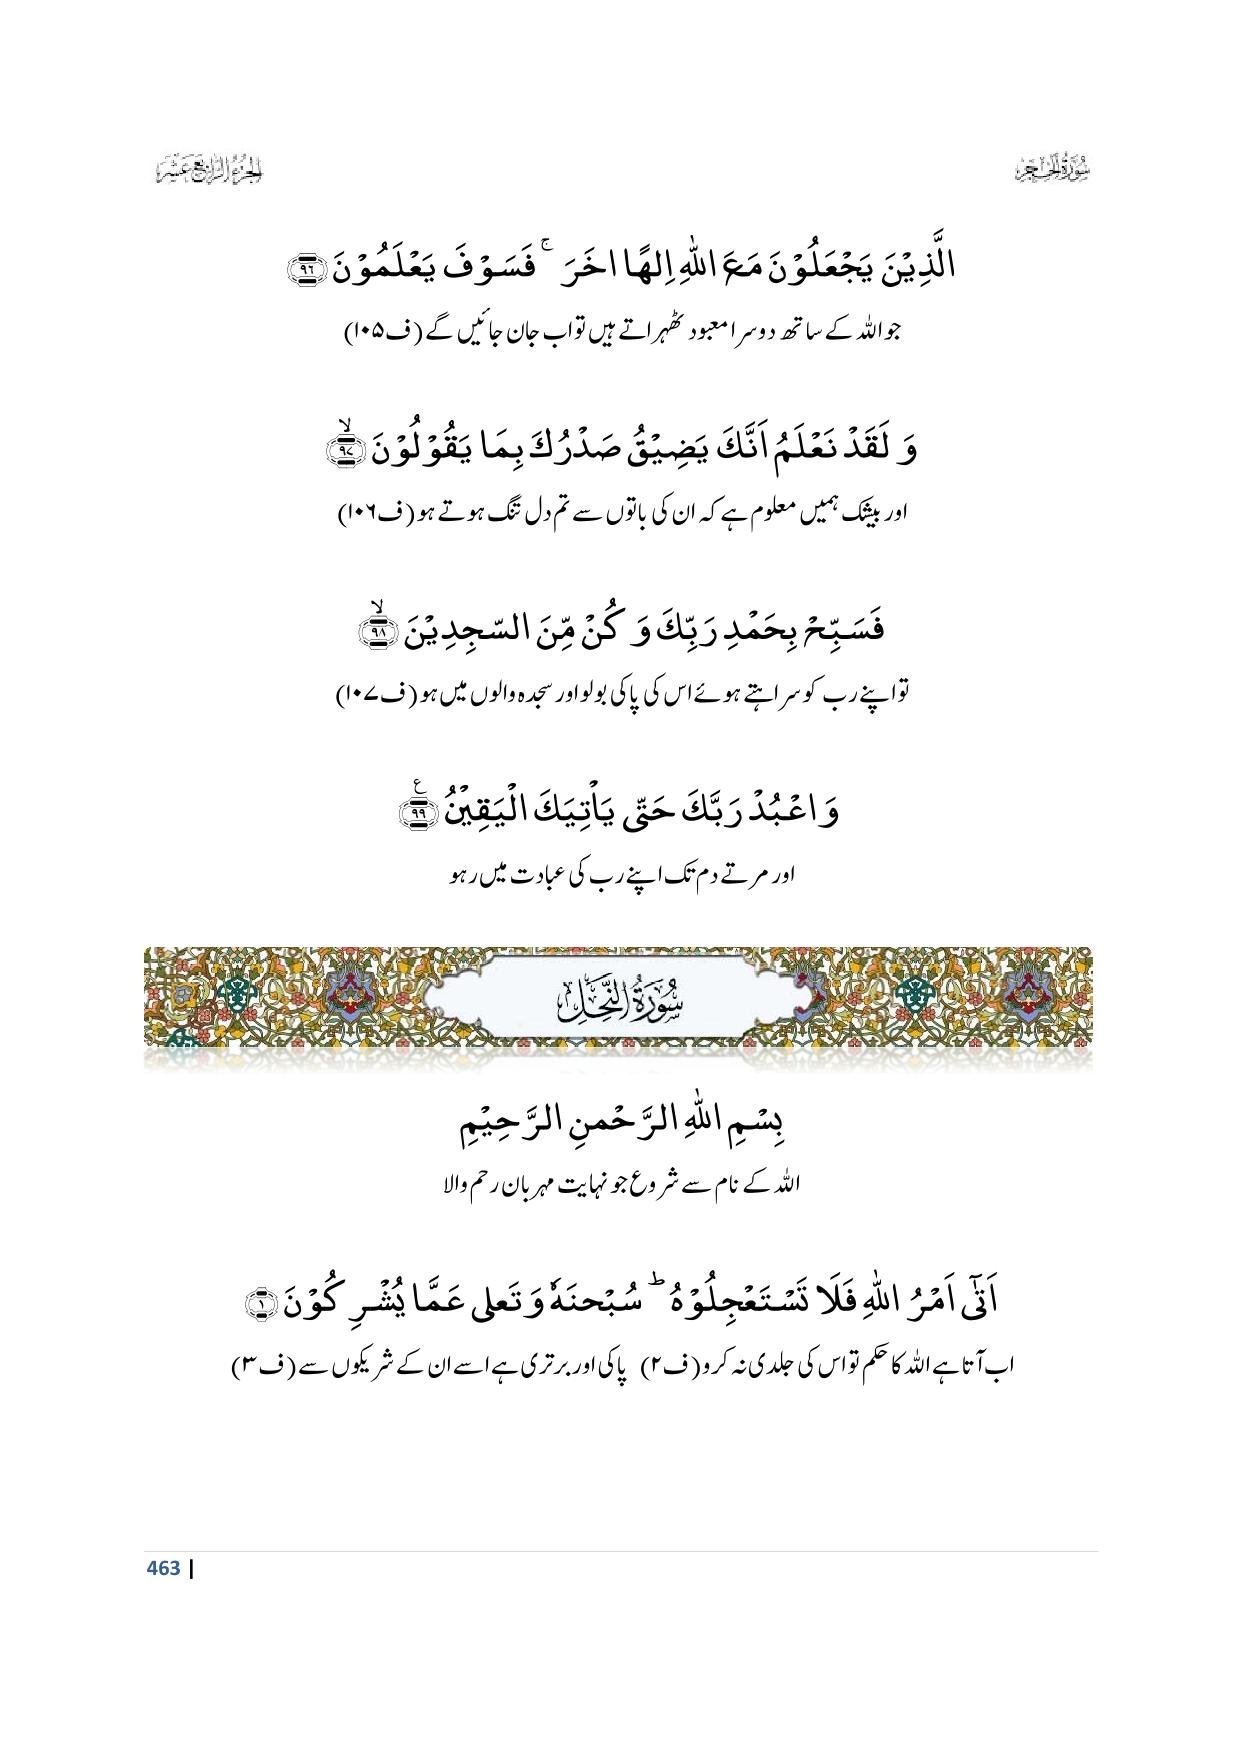 سُوْرَۃُ الْحِجْر
الجزء الرابع عشر
الَّذِیْنَ یَجْعَلُوْنَ مَعَ اللّٰهِ اِلٰهًا اٰخَرَ ۚ فَسَوْفَ یَعْلَمُوْنَ ﴿۹۶﴾
جو اللہ کے ساتھ دوسرا معبود ٹھہراتے ہیں تو اب جان جائیں گے (ف۱۰۵)
وَ لَقَدْ نَعْلَمُ اَنَّكَ یَضِیْقُ صَدْرُكَ بِمَا یَقُوْلُوْنَ ﴿ۙ۹۷﴾
اور بیشک ہمیں معلوم ہے کہ ان کی باتوں سے تم دل تنگ ہوتے ہو (ف۱۰۶)
فَسَبِّحْ بِحَمْدِ رَبِّكَ وَ كُنْ مِّنَ السّٰجِدِیْنَ ﴿ۙ۹۸﴾
تو اپنے رب کو سراہتے ہوئے اس کی پاکی بولو اور سجدہ والوں میں ہو (ف۱۰۷)
وَ اعْبُدْ رَبَّكَ حَتّٰی یَاْتِیَكَ الْیَقِیْنُ ﴿۹۹﴾ ع
اور مرتے دم تک اپنے رب کی عبادت میں رہو
سُوْرَةُ النَّحْلِ
بِسْمِ اللّٰهِ الرَّحْمٰنِ الرَّحِیْمِ
اللہ کے نام سے شروع جو نہایت مہربان رحم والا
اَتٰۤی اَمْرُ اللّٰهِ فَلَا تَسْتَعْجِلُوْهُ ؕ سُبْحٰنَهٗ وَ تَعٰلٰی عَمَّا یُشْرِكُوْنَ ﴿۱﴾
اب آتا ہے اللہ کا حکم تو اس کی جلدی نہ کرو (ف۲) پاکی اور برتری ہے اسے ان کے شریکوں سے (ف۳)
463 |